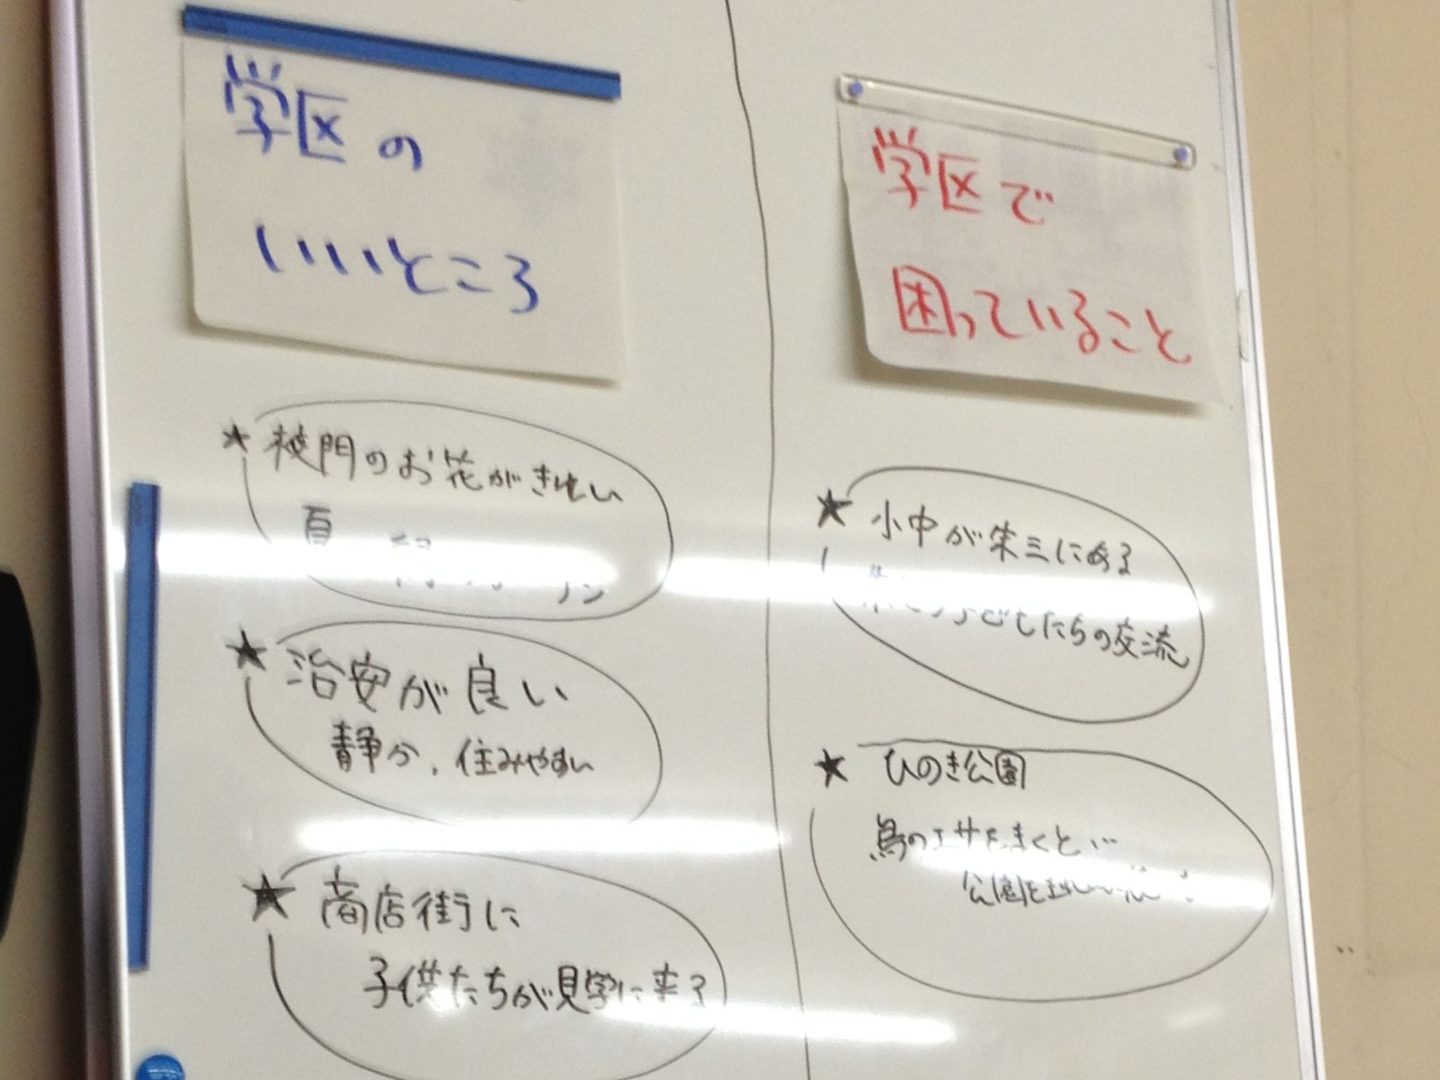 学区の
いいところ
★ 校門のお花がきれい
夏
★ 治安が良い
静か、住みやすい
★ 商店街に
子供たちが見学に来る
学区で
困っていること
★ 小中が朱三にある
子どもたちの交流
★ ひのき公園
鳥のエサをまくと…
公園と